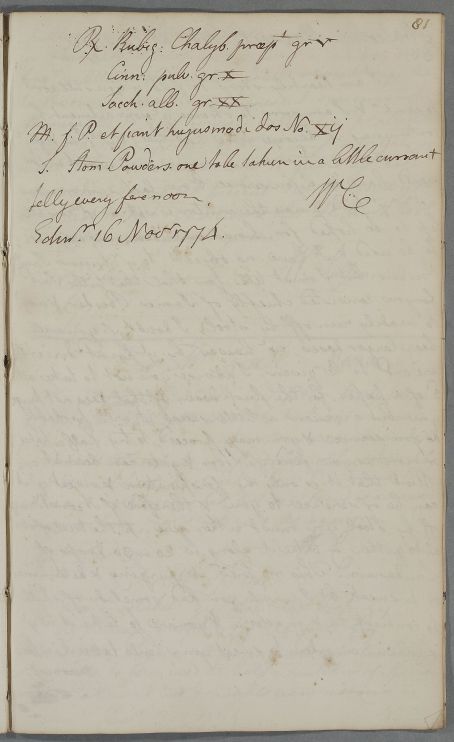 81
℞. Rubig: Chalyb. præpt. gr v
Cinn: pulv. gr. X
Sacch. alb. gr. XX.
M. f. P. et fiant hujusmodi dos No. Xij
S. Stom Powders. one to be taken in a little currant
Jelly every forenoon.
WC
Edinr. 16 Novr 1774.